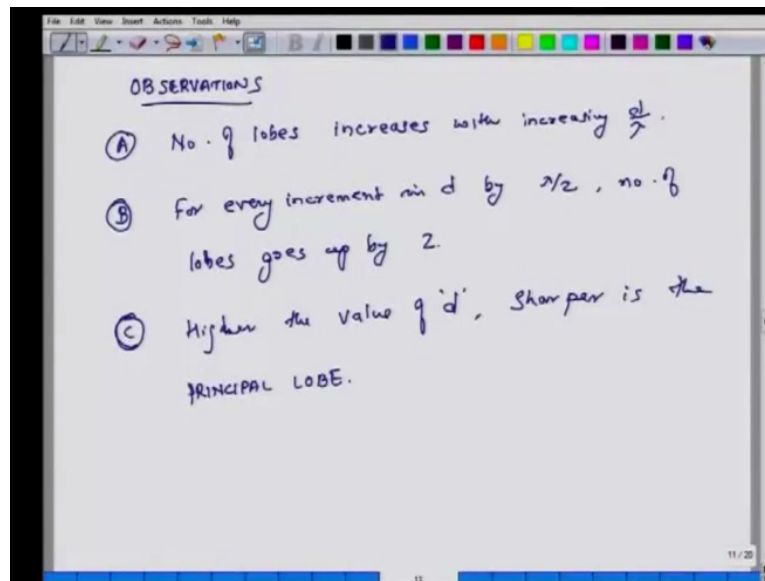 File Edit View Insert Actions Tools Help
OBSERVATIONS
(A) No. of lobes increases with increasing d/λ.
(B) For every increment in d by λ/2, no. of
lobes goes up by 2.
(C) Higher the value of 'd', Sharper is the
PRINCIPAL LOBE.
11/20